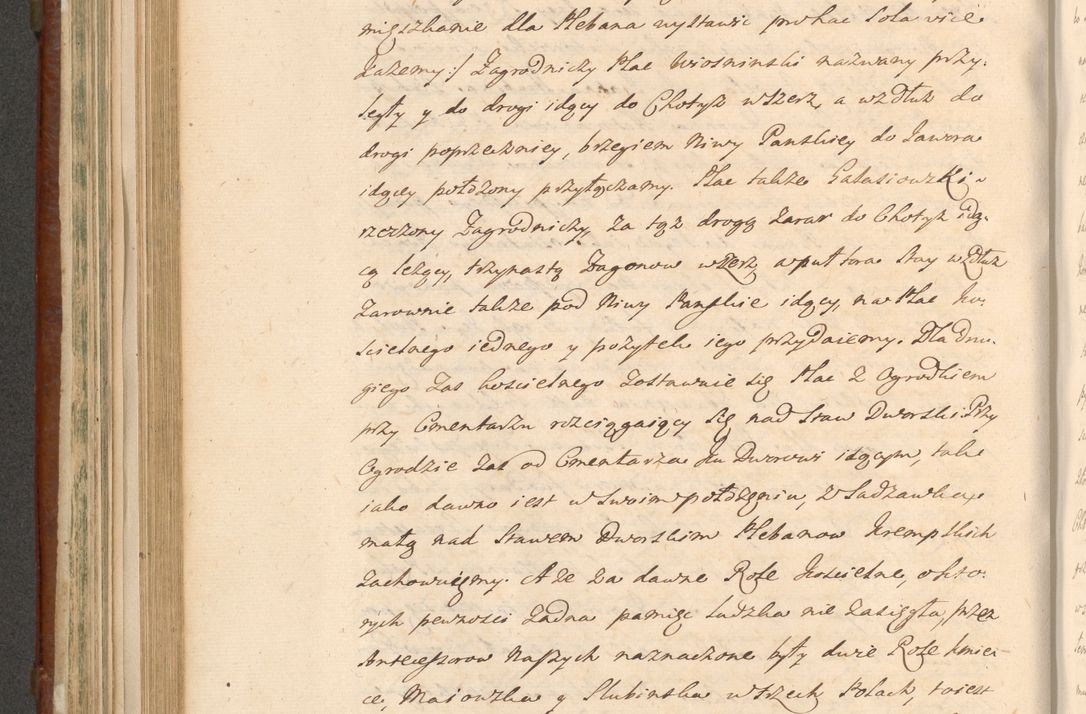 mięszkanie dla Plebana wystawić pro hac sola vice
każemy:/ Zagrodniczy Plac Wiosninski nazwany przy-
legły y do drogi idący do Chotyz wszerz, a wzdłuż do
drogi poprzeczney, brzegiem Niwy Panskiey do Jawora
idący położony przyłączamy. Plac także Galasiowzki
rzeczony Zagrodniczy, za tąż drogą zaraz do Chotyz idą-
cą leżący, trzynastą Zagonow wszerz, a puł tora Stay wzdłuż
zarownie także pod Niwy Panskie idący, na Plac ko-
scielnego iednego y pożytek iego przydaiemy. Dla dru-
giego zas koscielnego zostawuie się Plac z Ogrodkiem
przy Cmentarzu rozciągaiący się nad Staw Dworski. Przy
Ogrodzie zas od Cmentarza ku Dworowi idącym, tak
iako dawno iest w Swoim położeniu, z Sadzawką
małą nad Stawem Dworskim Plebanow Krempskich
zachowuiemy. A że za dawne Role Koscielne, o kto-
rych pewnosci żadna pamięć ludzka nie zasięgła, przez
Antecessorow Naszych naznaczone były dwie Role kmie-
ce, Maiowska y Slubinska w trzech Polach, to iest